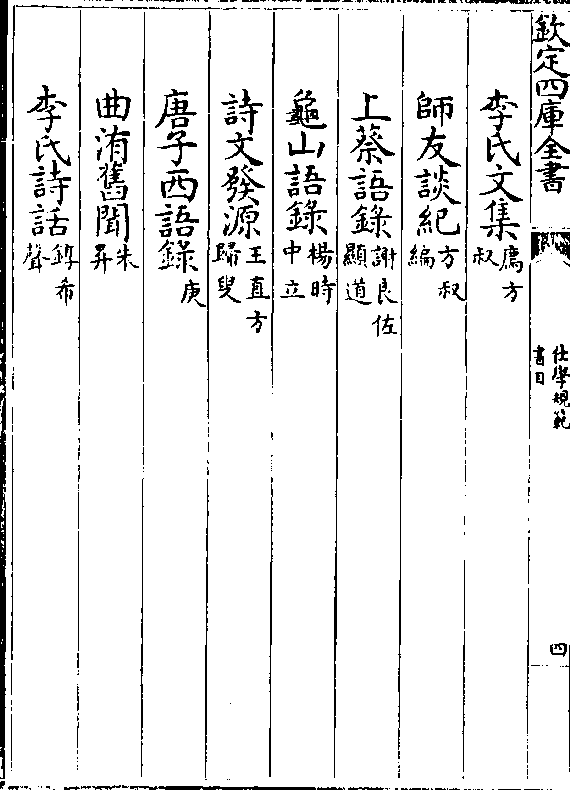 欽定四庫全書
仕學規範
書目
四
李氏文集 廌方叔
師友談紀 方叔編
上蔡語錄 謝良佐顯道
龜山語錄 楊時中立
詩文發源 王直方歸叟
唐子西語錄 庚
曲洧舊聞 朱弁
李氏詩話 錞希聲